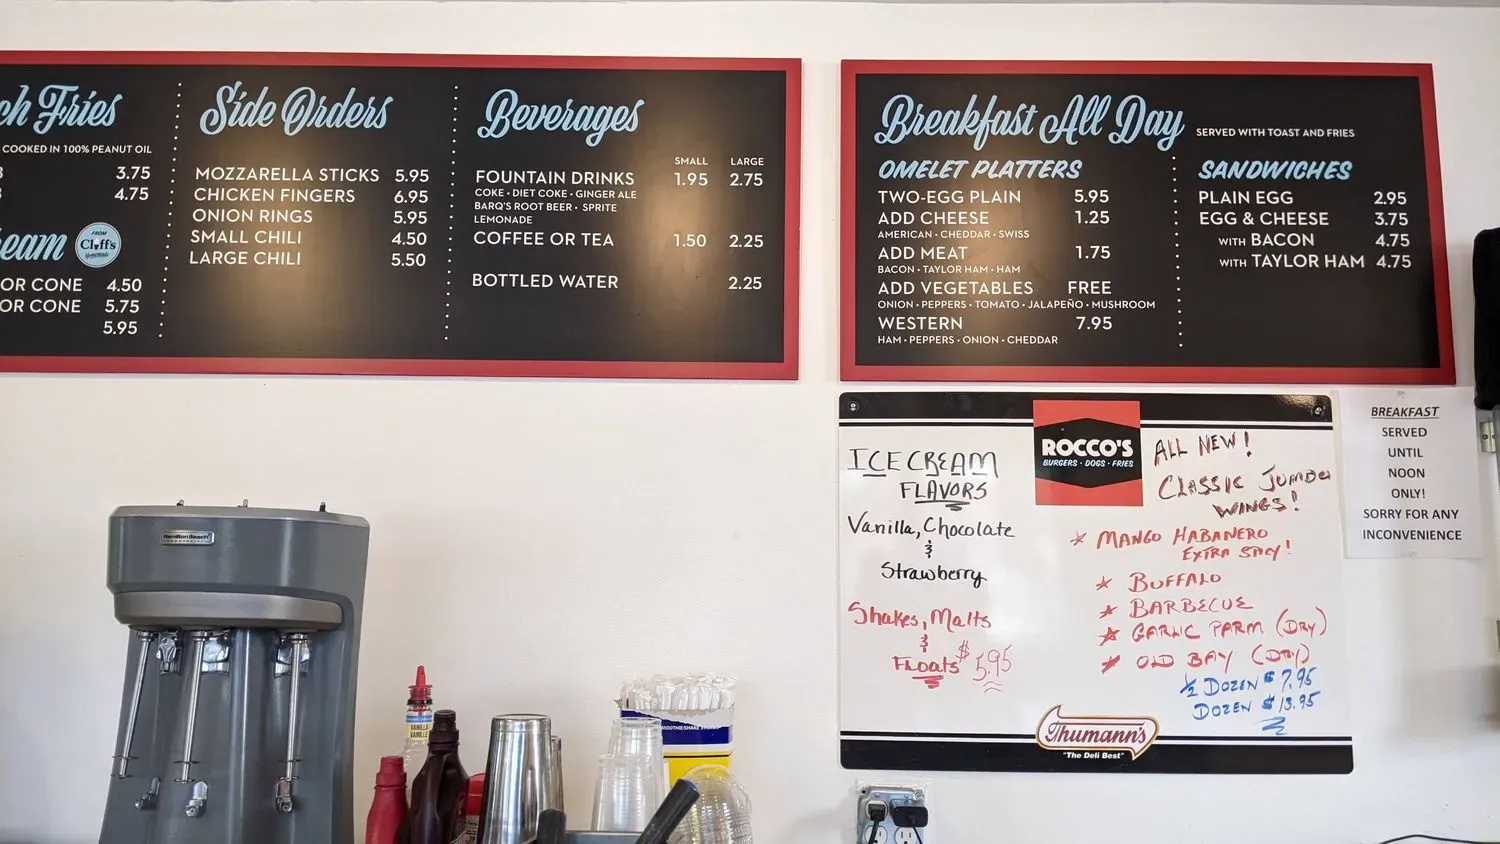 ch Fries
COOKED IN 100% PEANUT OIL
3.75
4.75
eam
FROM
Cliff's
Homemade
OR CONE 4.50
OR CONE 5.75
5.95
Side Orders
MOZZARELLA STICKS 5.95
CHICKEN FINGERS 6.95
ONION RINGS 5.95
SMALL CHILI 4.50
LARGE CHILI 5.50
Beverages
SMALL LARGE
FOUNTAIN DRINKS 1.95 2.75
COKE • DIET COKE • GINGER ALE
BARQ'S ROOT BEER • SPRITE
LEMONADE
COFFEE OR TEA 1.50 2.25
BOTTLED WATER 2.25
Breakfast All Day SERVED WITH TOAST AND FRIES
OMELET PLATTERS
TWO-EGG PLAIN 5.95
ADD CHEESE 1.25
AMERICAN • CHEDDAR • SWISS
ADD MEAT 1.75
BACON • TAYLOR HAM • HAM
ADD VEGETABLES FREE
ONION • PEPPERS • TOMATO • JALAPEÑO • MUSHROOM
WESTERN 7.95
HAM • PEPPERS • ONION • CHEDDAR
SANDWICHES
PLAIN EGG 2.95
EGG & CHEESE 3.75
WITH BACON 4.75
WITH TAYLOR HAM 4.75
ICE CREAM
FLAVORS
Vanilla, Chocolate
&
Strawberry
Shakes, Malts
&
Floats $5.95
ROCCO'S
BURGERS • DOGS • FRIES
ALL NEW!
CLASSIC JUMBO
WINGS!
* MANGO HABANERO
EXTRA SPICY!
* BUFFALO
* BARBECUE
* GARLIC PARM (DRY)
* OLD BAY (DRY)
1/2 DOZEN $7.95
DOZEN $13.95
Thumann's
"The Deli Best"
BREAKFAST
SERVED
UNTIL
NOON
ONLY!
SORRY FOR ANY
INCONVENIENCE
Hamilton Beach
VANILLA
VANILLE